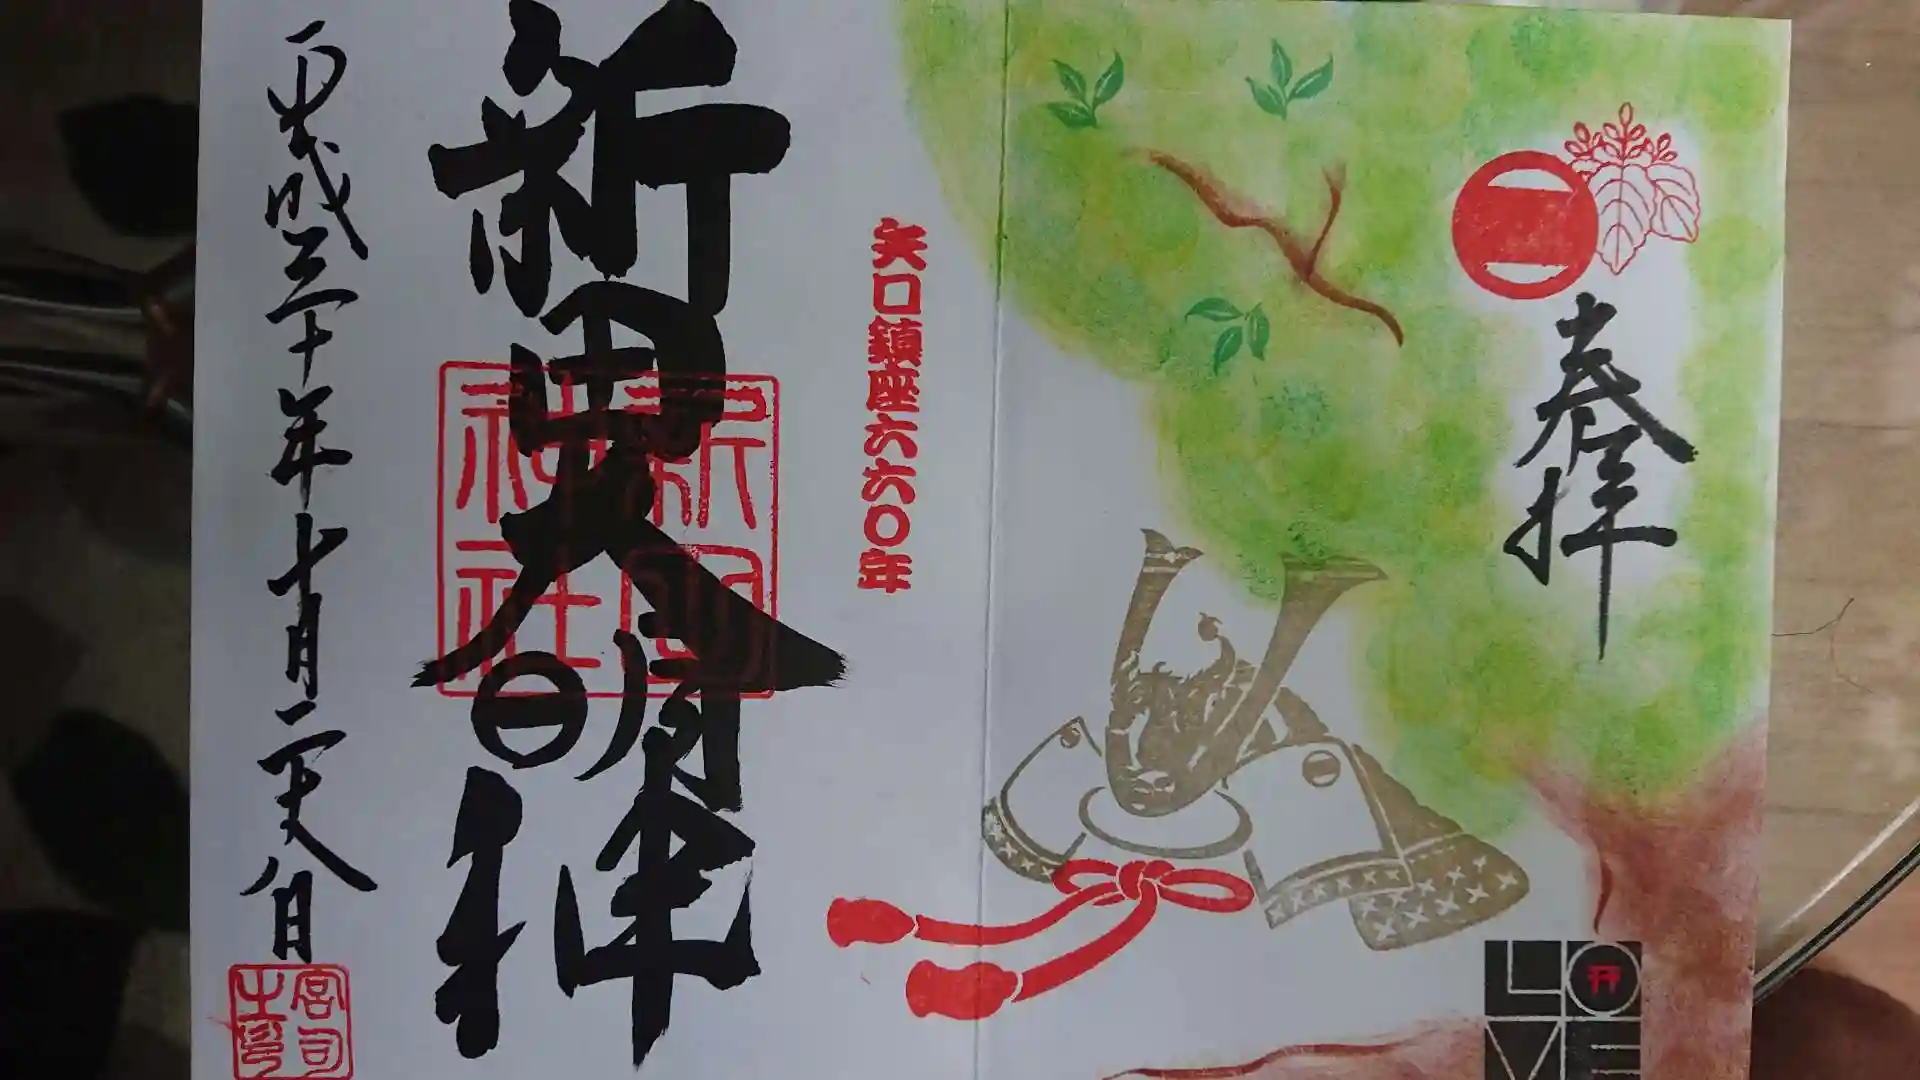 奉拝
LOVE
矢口鎮座六六〇年
新田大明神
新田神社
平成三十年十月二十六日
宮司之印